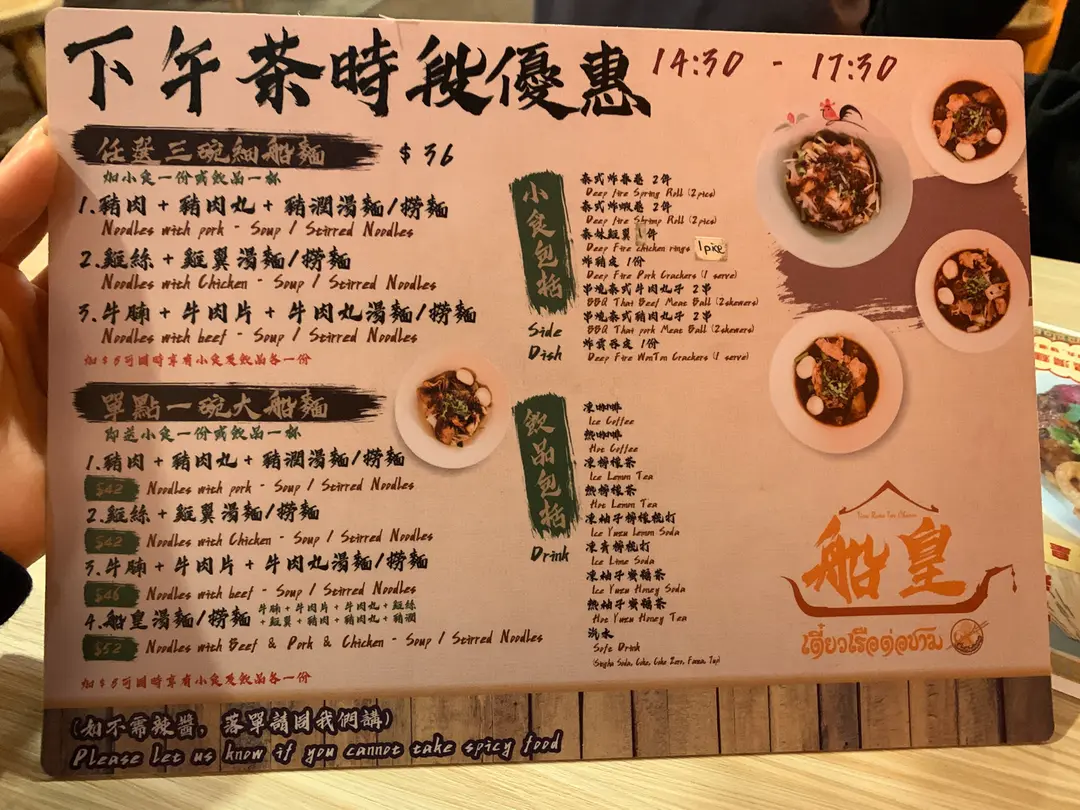 下午茶時段優惠 14:30 - 17:30
任選三碗細船麵 $36
加小食一份或飲品一杯
1.豬肉 + 豬肉丸 + 豬潤湯麵/撈麵
Noodles with pork - Soup / Stirred Noodles
2.雞絲 + 雞翼湯麵/撈麵
Noodles with Chicken - Soup / Stirred Noodles
3.牛腩 + 牛肉片 + 牛肉丸湯麵/撈麵
Noodles with beef - Soup / Stirred Noodles
加$8可同時享有小食及飲品各一份
單點一碗大船麵
即送小食一份或飲品一杯
1.豬肉 + 豬肉丸 + 豬潤湯麵/撈麵
$42 Noodles with pork - Soup / Stirred Noodles
2.雞絲 + 雞翼湯麵/撈麵
$42 Noodles with Chicken - Soup / Stirred Noodles
3.牛腩 + 牛肉片 + 牛肉丸湯麵/撈麵
$46 Noodles with beef - Soup / Stirred Noodles
4.船皇湯麵/撈麵 牛腩 + 牛肉片 + 牛肉丸 + 雞絲
+ 雞翼 + 豬肉 + 豬肉丸 + 豬潤
$52 Noodles with Beef & Pork & Chicken - Soup / Stirred Noodles
加$8可同時享有小食及飲品各一份
小食包括
Side
Dish
泰式炸春卷 2件
Deep fire Spring Roll (2pics)
泰式炸蝦卷 2件
Deep fire Shrimp Roll (2pics)
泰妹雞翼 1件
Deep Fire chicken rings 1pike
炸豬皮 1份
Deep Fire Pork Crackers (1 serve)
串燒泰式牛肉丸子 2串
BBQ Thai Beef Meat Ball (2skewers)
串燒泰式豬肉丸子 2串
BBQ Thai pork Meat Ball (2skewers)
炸雲吞皮 1份
Deep Fire WonTon Crackers (1 serve)
飲品包括
Drink
凍咖啡
Ice Coffee
熱咖啡
Hot Coffee
凍檸檬茶
Ice Lemon Tea
熱檸檬茶
Hot Lemon Tea
凍柚子檸檬梳打
Ice Yuzu Lemon Soda
凍青檸梳打
Ice Lime Soda
凍柚子蜜糖茶
Ice Yuzu Honey Soda
熱柚子蜜糖茶
Hot Yuzu Honey Tea
汽水
Soft Drink
(Singha Soda, Coke, Coke Zero, Fanta, 7up)
船皇
(如不需辣醬，落單請同我們講)
Please let us know if you cannot take spicy food